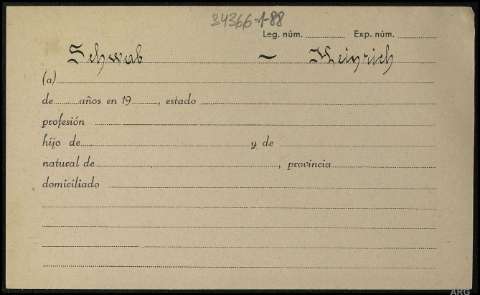 34366-1-88
Leg. núm. Exp. núm.
Schwab - Heinrich
(a)
de años en 19 , estado
profesión
hijo de y de
natural de , provincia
domiciliado
ARG